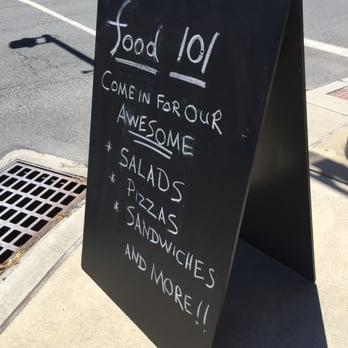 food 101
COME IN FOR OUR
AWESOME
* SALADS
* PIZZAS
* SANDWICHES
AND MORE!!